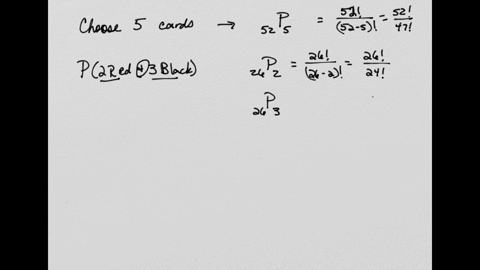 Choose 5 cards → ₅₂P₅ = 52!/(52-5)! = 52!/47!
P(2Red & 3Black) ₂₆P₂ = 26!/(26-2)! = 26!/24!
₂₆P₃